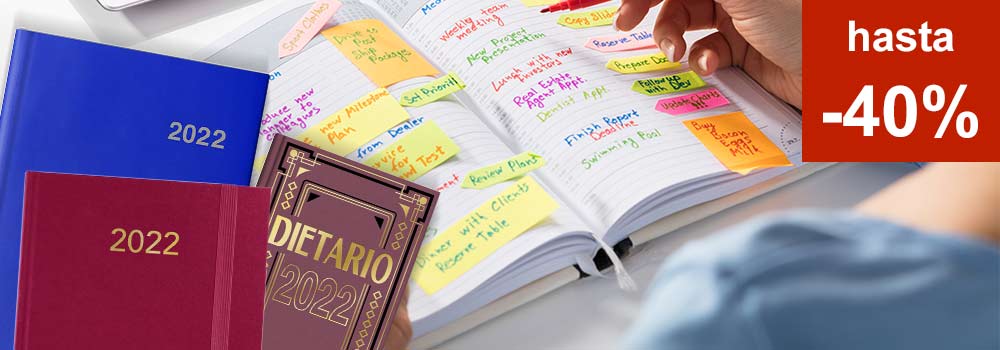 2022
2022
DIETARIO
2022
Sport Clothes
Drive to
Post
Ship Package
new
manager to
colleagues
new Milestone
Plan
Set Prioriti
from Dealer
service
for Test
Review Plan
Dinner with Clients
Reserve Table
Weekly team
meeting
New Project
Presentation
Lunch with new
Investors
Real Estate
Agent Appt.
Dentist Appt.
Finish Report
Deadline
Swimming Pool
Reserve Table
Prepare Doc
Follow up
with Dev
Update charts
Buy Bacon
Eggs
Milk
hasta
-40%